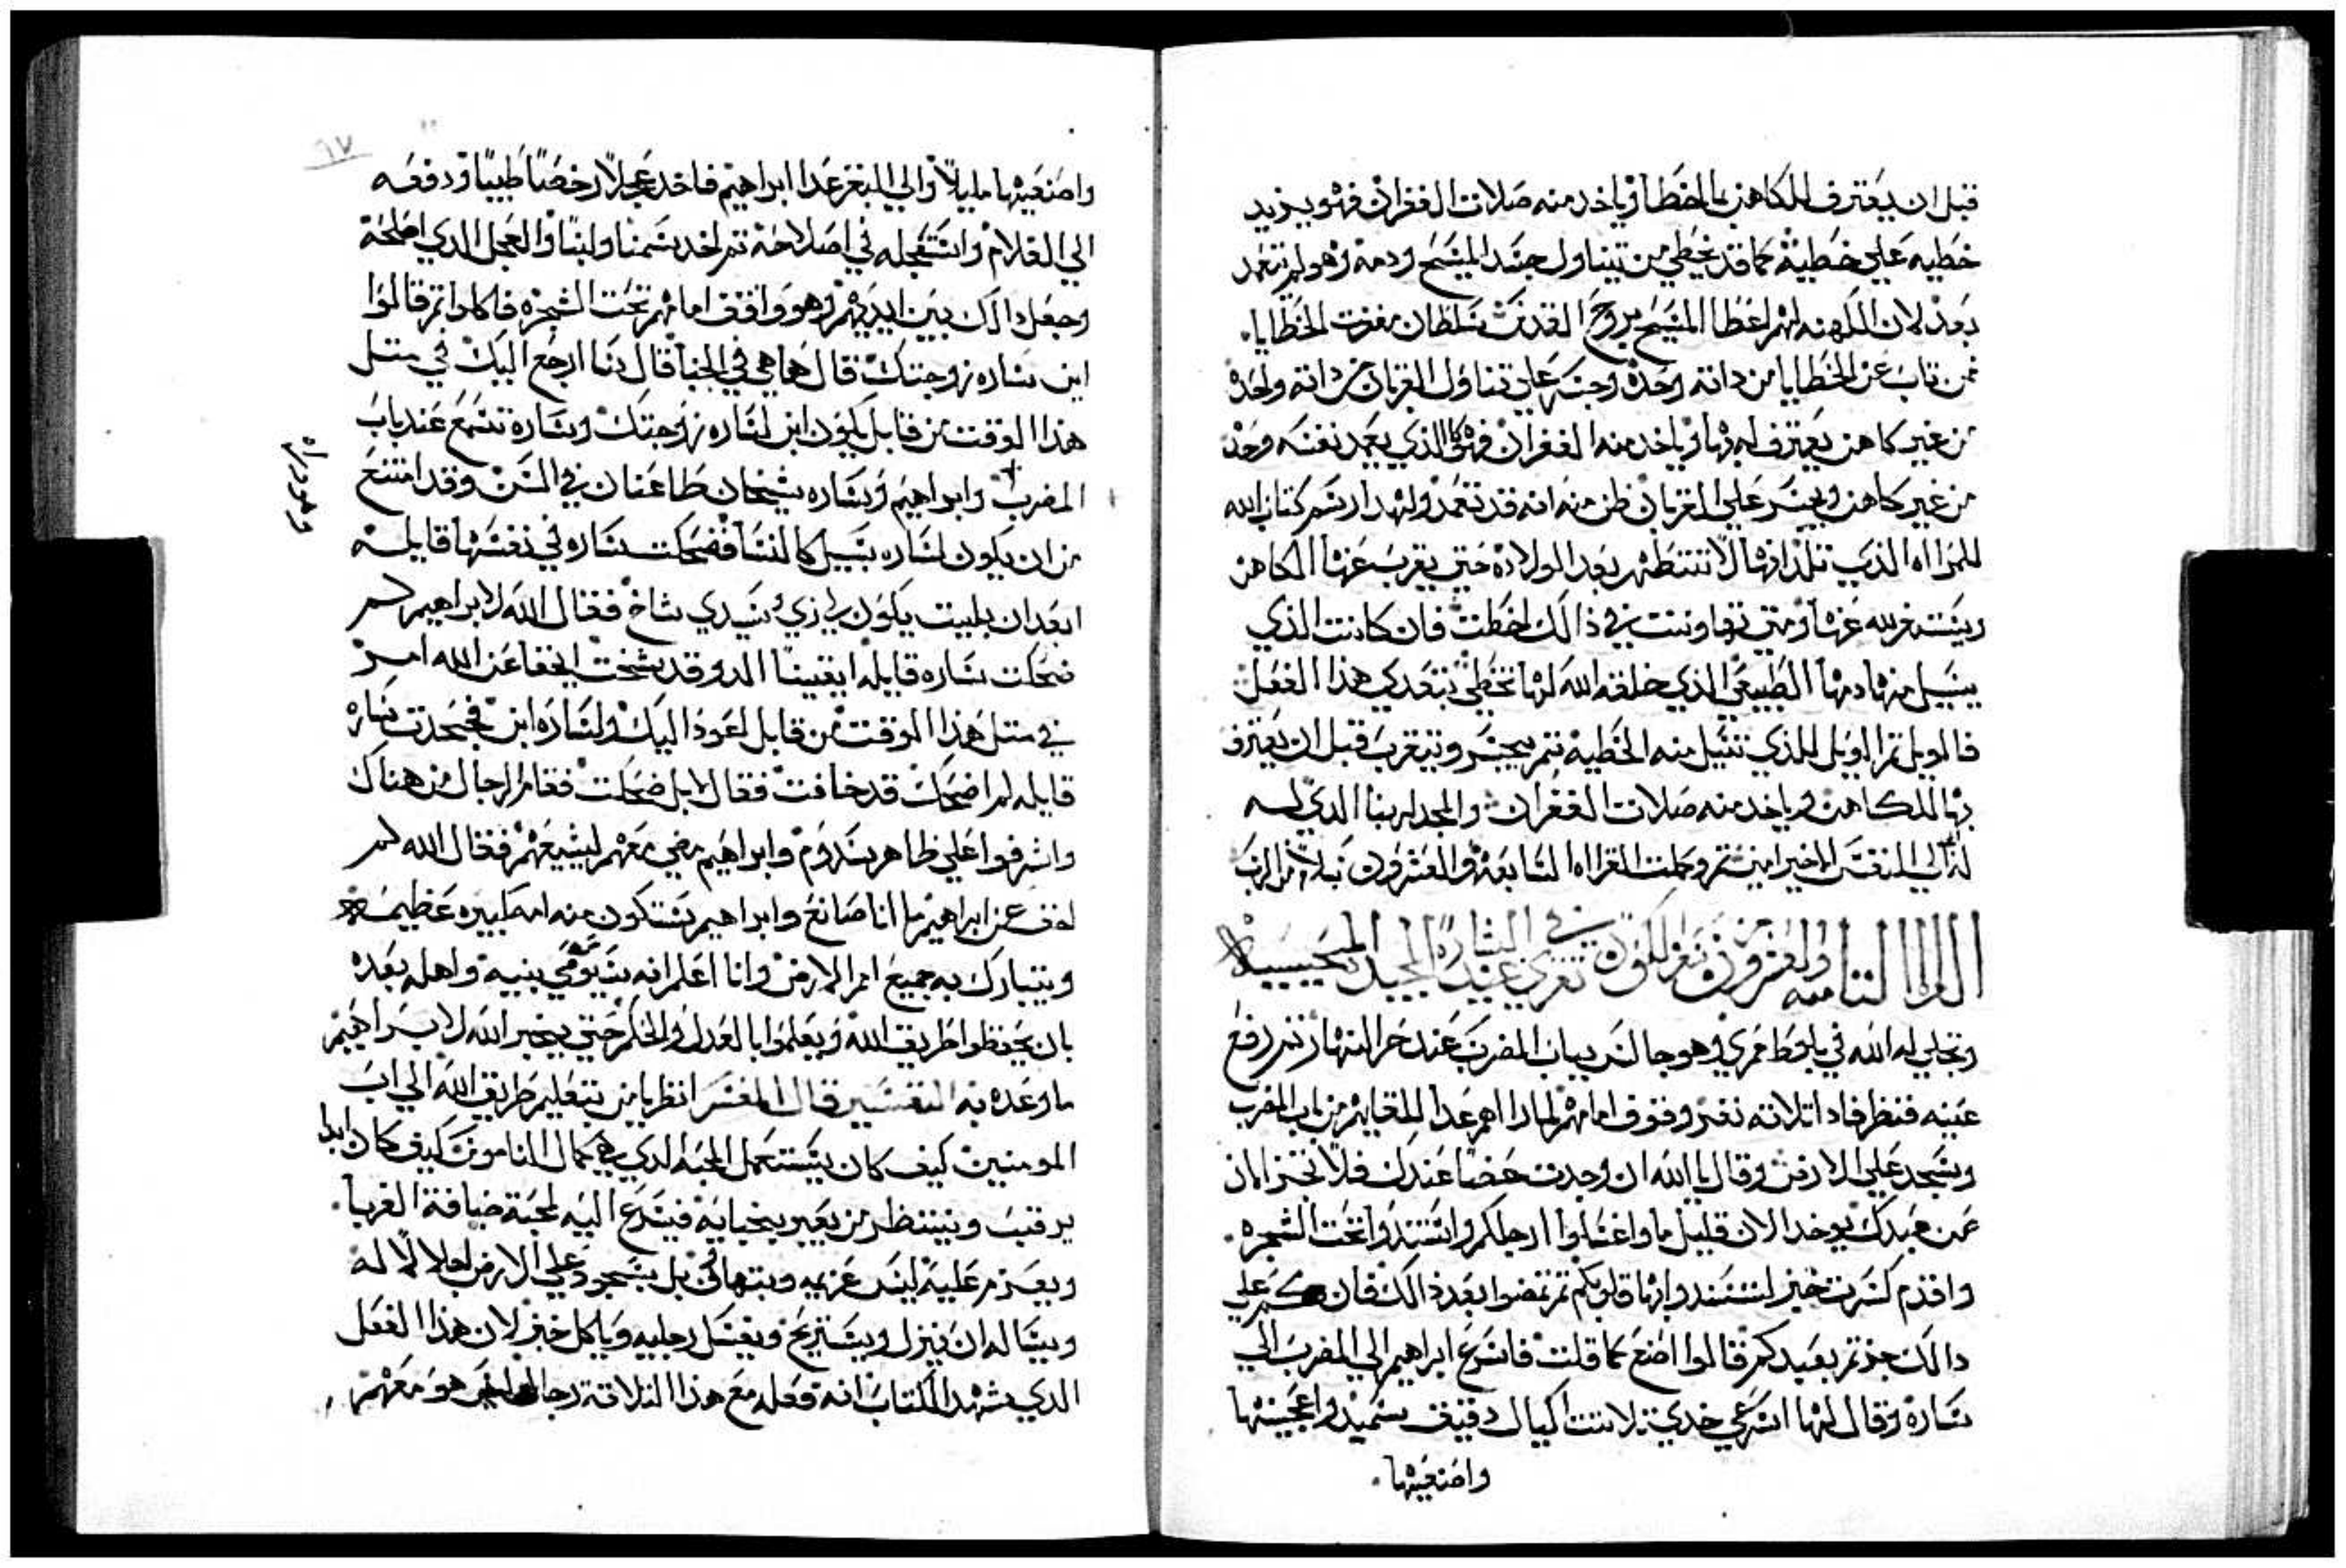 قبل ان يعترف للكاهن بالخطا وياخد منه صلات الغفران فهو يزيد
خطيه علي خطيته كما قد يخطي من تيناول جسد المسيح ودمه وهو لم يتعمد
بعد لان الكهنه لهم اعطا المسيح بروح القدس سلطان مغفرت الخطايا.
فمن تاب عن الخطايا من داته وحده وجسر علي تناول القربان من داته وحده
من غير كاهن يعترف له بها وياخد منه الغفران فهو كالذي يعمد نفسه وحده
من غير كاهن ويجسر علي القربان ظن منه انه قد تعمد ولهدا رسم كتاب الله
للمراه الذي تلد انها لا تتطهر بعد الولاده حتي يقرب عنها الكاهن
ويستغفر لله عنها ومتي تهاونت في ذالك اخطت فان كانت الذي
يسيل منها دمها الطبيعي الذي خلقه الله لها تخطي بتعدي هذا الفعل
فالويل تم الويل للذي تسيل منه الخطيه تم يجسر ويتقرب قبل ان يعترف
بها للكاهن وياخد منه صلات الغفران والمجد لربنا الدي له
الي النفس الاخير امين تم وكملت القراه السابعه والعشرون بسلام من الرب
القراه التامنه والعشرون من سفر التكوين تقري في عيد البشاره المجيد المسيحيه
وتجلي له الله في بلوط ممري وهو جالس بباب المضرب عند حر النهار تم رفع
عينه فنظر فادا تلاته نفر وقوف امامه لما راهم عدا للقايهم من باب المضرب
وسجد علي الارض وقال يا الله ان وجدت حضا عندك فلا تجتز الان
عن عبدك يوخد الان قليل ما واغسلوا ارجلكم واستندوا تحت الشجره.
واقدم كسرت خبز لتسندوا بها قلوبكم تم تمضوا بعد ذالك فانكم علي
دالك جزتم بعبدكم قالوا اصنع كما قلت فاسرع ابراهيم الي المضرب الي
ساره وقال لها اسرعي خدي تلاتت اكيال دقيق سميد واعجينها
واصنعيها.
٩٧
واصنعيها مليلا والي البقر عدا ابراهيم فاخد عجلا رخصا طيبا ودفعه
الي الغلام واستعجله في اصلاحه تم اخد سمنا ولبنا والعجل الدي اصلحه
وجعل دالك بين ايديهم وهو واقف امامهم تحت الشجره فاكلوا تم قالوا
اين ساره زوجتك قال ها هي في الخبا قال بنا ارجع اليك في متل
هذا الوقت من قابل يكون ابن لساره زوجتك وساره تسمع عند باب
المضرب وابراهيم وساره شيخان طاعنان في السن وقد امتنع
وهو وراه
من ان يكون لساره سبيل كالنسا فضحكت ساره في نفسها قايله
ابعد ان بليت يكون لي زي وسيدي شاخ فقال الله لابراهيم لم
ضحكت ساره قايله ايقينا الد وقد شخت ايخفا عن الله امر
في متل هذا الوقت من قابل اعود اليك ولساره ابن فجحدت ساره
قايله لم اضحك قد خافت فقال لا بل ضحكت فقام الرجال من هناك
واشرفوا علي ظاهر سدوم وابراهيم مضي معهم ليشيعهم فقال الله لم
اخف عن ابراهيم ما انا صانع وابراهيم ستكون منه امه كبيره عظيمه
ويتبارك به جميع امم الارض وانا اعلم انه سيوصي بنيه واهله بعده
بان يحفظوا طريق الله ويعلموا بالعدل والحكم حتي يجبر الله لابراهيم
ما وعده به التفسير قال المفسر انظر يا من تعليم طريق الله الي اب
المومنين كيف كان يستعمل المحبه الدي هي كمال الناموس كيف كان ابدا
يرقب وينتظر من يعبر بخبايه فيسرع اليه لمحبة ضيافة الغربا.
ويعزم عليه ليس عزيمه وبتهاون بل بسجود علي الارض اجلالا له
ويساله ان ينزل ويستريح ويغسل رجليه وياكل خبز لان هذا الفعل
الدي شهد الكتاب انه فعله مع هذا التلاتة رجال هو معهم